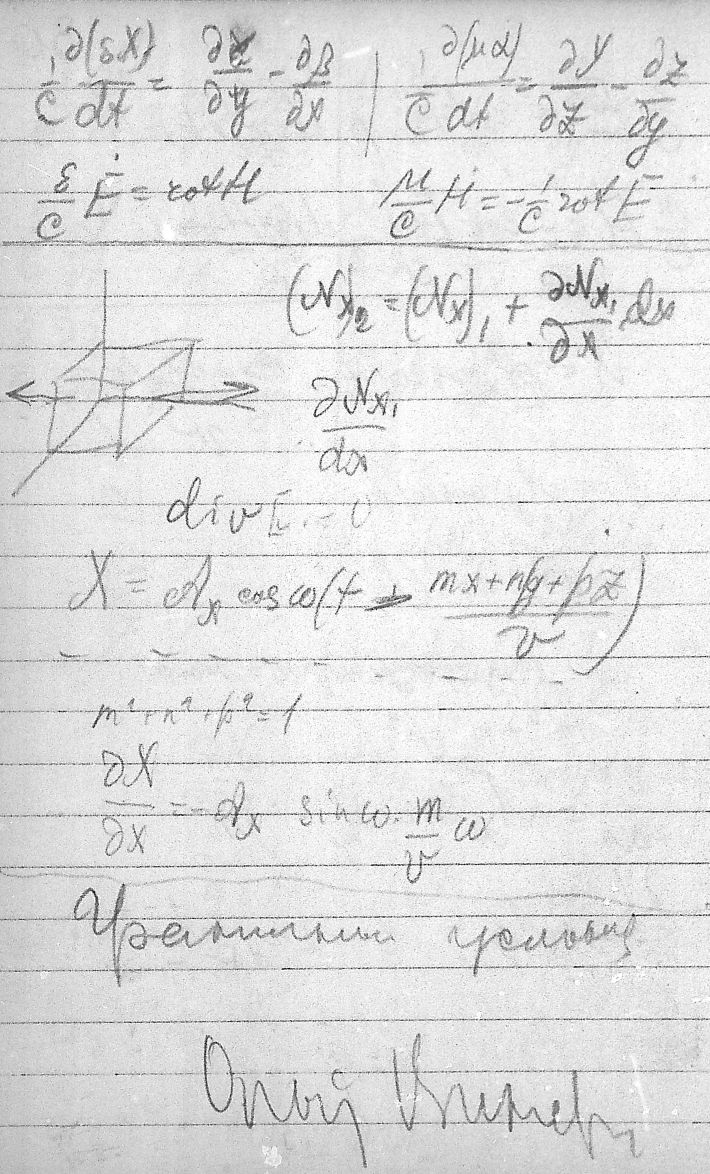 1/c ∂(εX)/dt = ∂γ/∂y - ∂β/∂x | 1/c ∂(μα)/dt = ∂Y/∂z - ∂z/∂y
ε/c Ė = rot H μ/c Ḣ = -1/c rot E
(Nx)₂ = (Nx)₁ + ∂Nx₁/∂x dx
∂Nx₁/dx
div E = 0
X = Ax cos ω(t + (mx+ny+pz)/v)
m²+n²+p²=1
∂X/∂x = -Ax sin ω · m/v ω
Граничныи условия
Опыт Винера